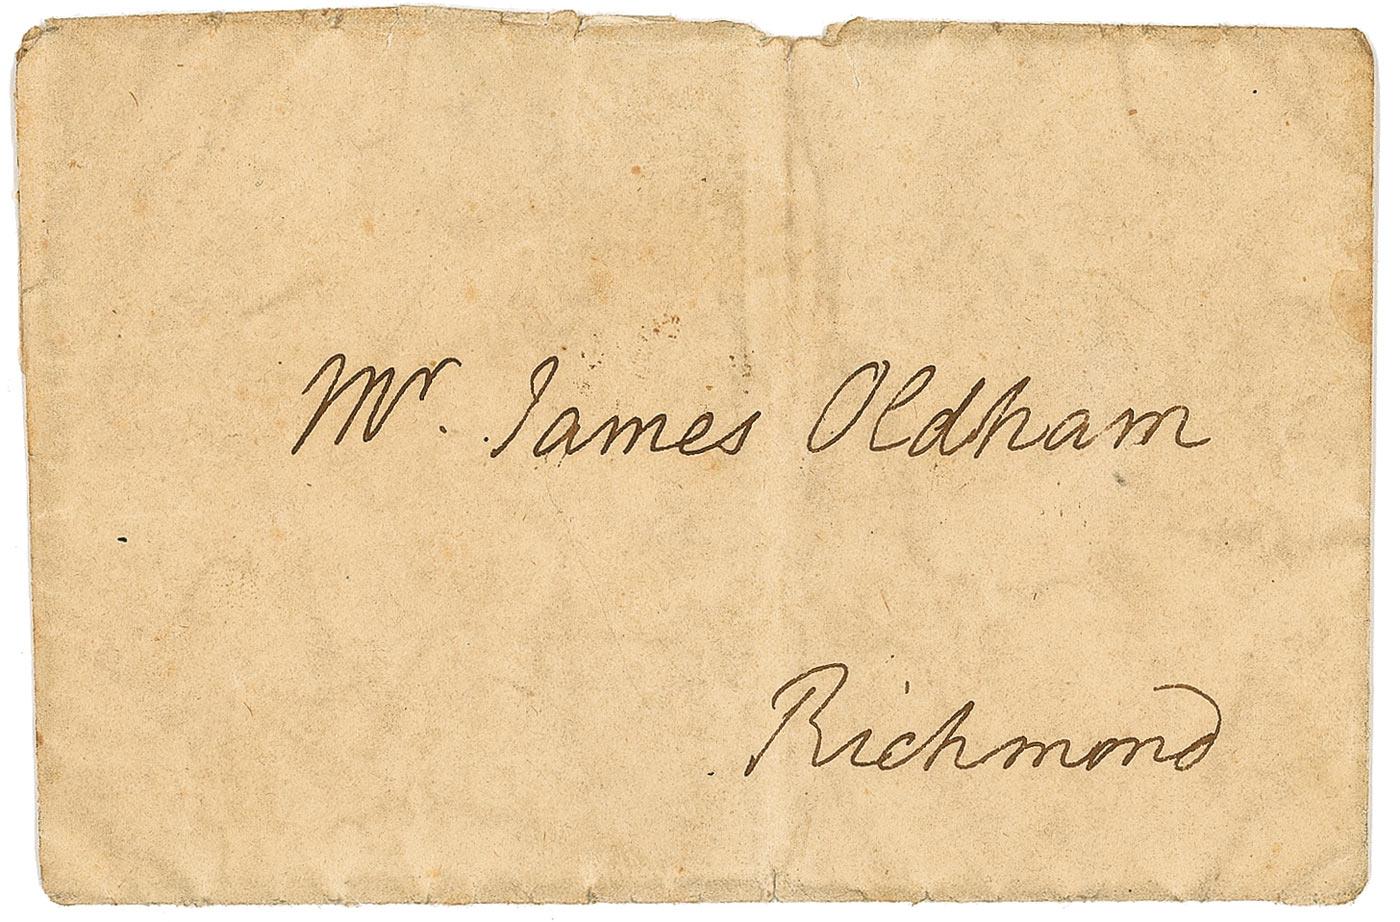 Mr. James Oldham
Richmond